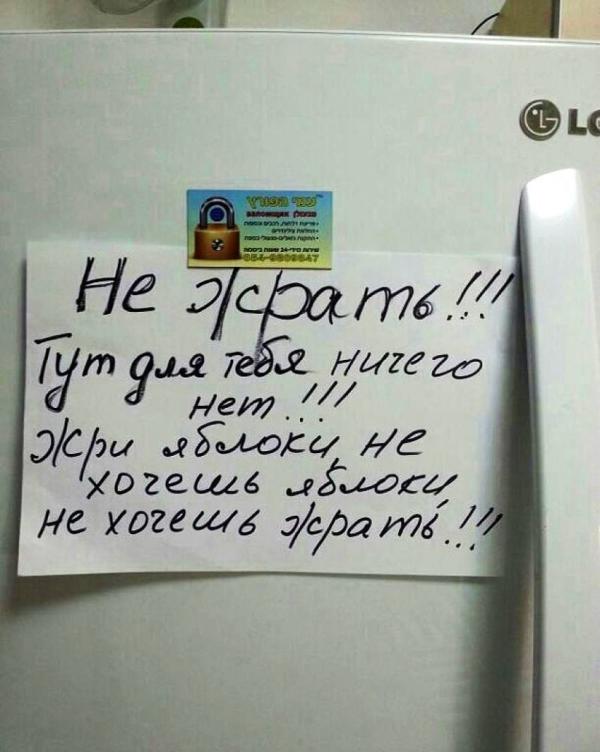 LG
יוסי הפורץ
взломщик
054-9809847
Не жрать!!!
Тут для тебя ничего
нет!!!
Жри яблоки, не
хочешь яблоки,
не хочешь жрать!!!